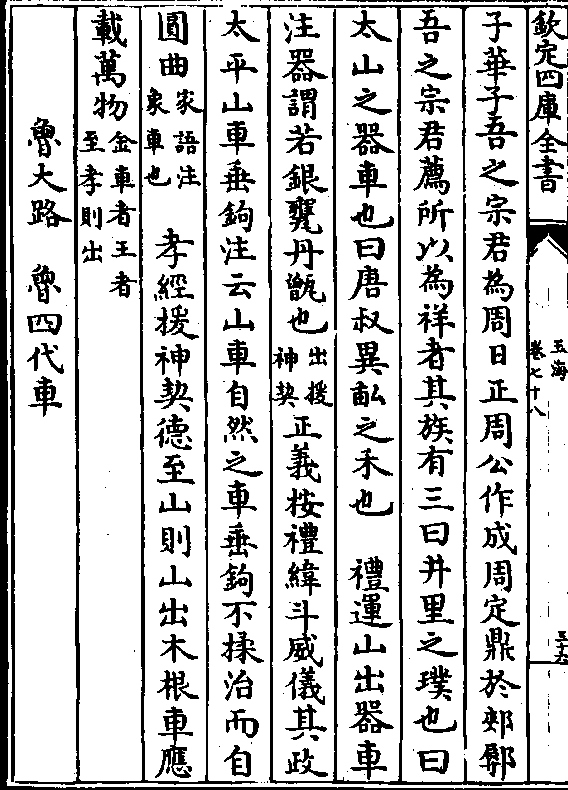 欽定四庫全書
玉海
卷七十八
子華子吾之宗君為周日正周公作成周定鼎於郟鄏
吾之宗君薦所以為祥者其族有三曰井里之璞也曰
太山之器車也曰唐叔異畝之禾也 禮運山出器車
注器謂若銀甕丹甑也出援神契正義按禮緯斗威儀其政
太平山車垂鉤注云山車自然之車垂鉤不揉治而自
圓曲家語注象車也 孝經援神契德至山則山出木根車應
載萬物金車者王者至孝則出
魯大路 魯四代車